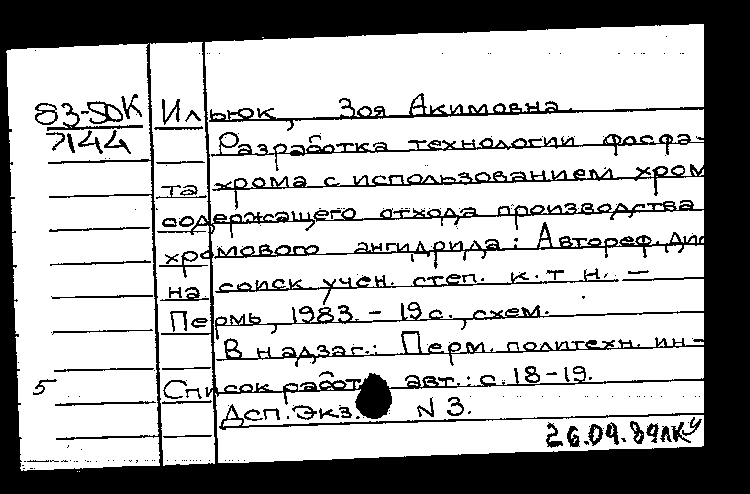 83-50К
7144
Ильюк, Зоя Акимовна.
Разработка технологии фосфа-
та хрома с использованием хром
содержащего отхода производства
хромового ангидрида: Автореф. дис
на соиск учен. степ. к.т н. —
Пермь, 1983. - 19 с., схем.
В надзаг.: Перм. политехн. ин-
5
Список работ авт.: с. 18-19.
Дсп. Экз. N 3.
26.09.89